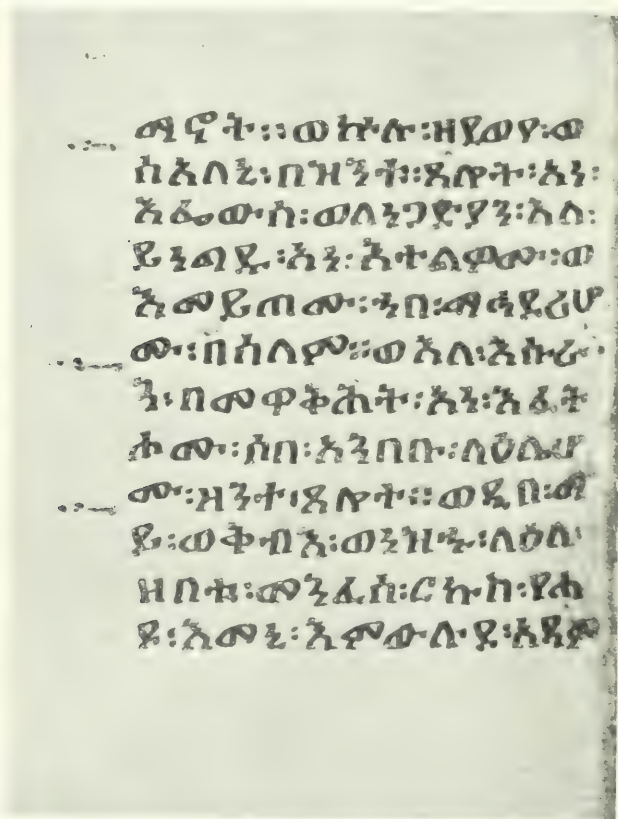 ማኖት፡፡ወኵሉ፡ዘደወየ፡ወ
ሰአለኒ፡በዝንቱ፡ጸሎት፡አነ፡
እፌውስ፡ወለነጋድያን፡እለ፡
ይነግዱ፡አነ፡እተልዎሙ፡ወ
እመይጠሙ፡ኀበ፡ማኅደሪሆ
ሙ፡በሰላም፡፡ወእለ፡እሱራ
ን፡በመዋቅሕት፡አነ፡እፈት
ሖሙ፡ሶበ፡አንበቡ፡ላዕሌሆ
ሙ፡ዛንተ፡ጸሎተ፡፡ወዲበ፡ማ
ይ፡ወቅብእ፡ወነዝኁ፡ላዕለ፡
ዘበቱ፡መንፈስ፡ርኩስ፡የሐ
ዩ፡እመኒ፡እምውሉደ፡አዳም